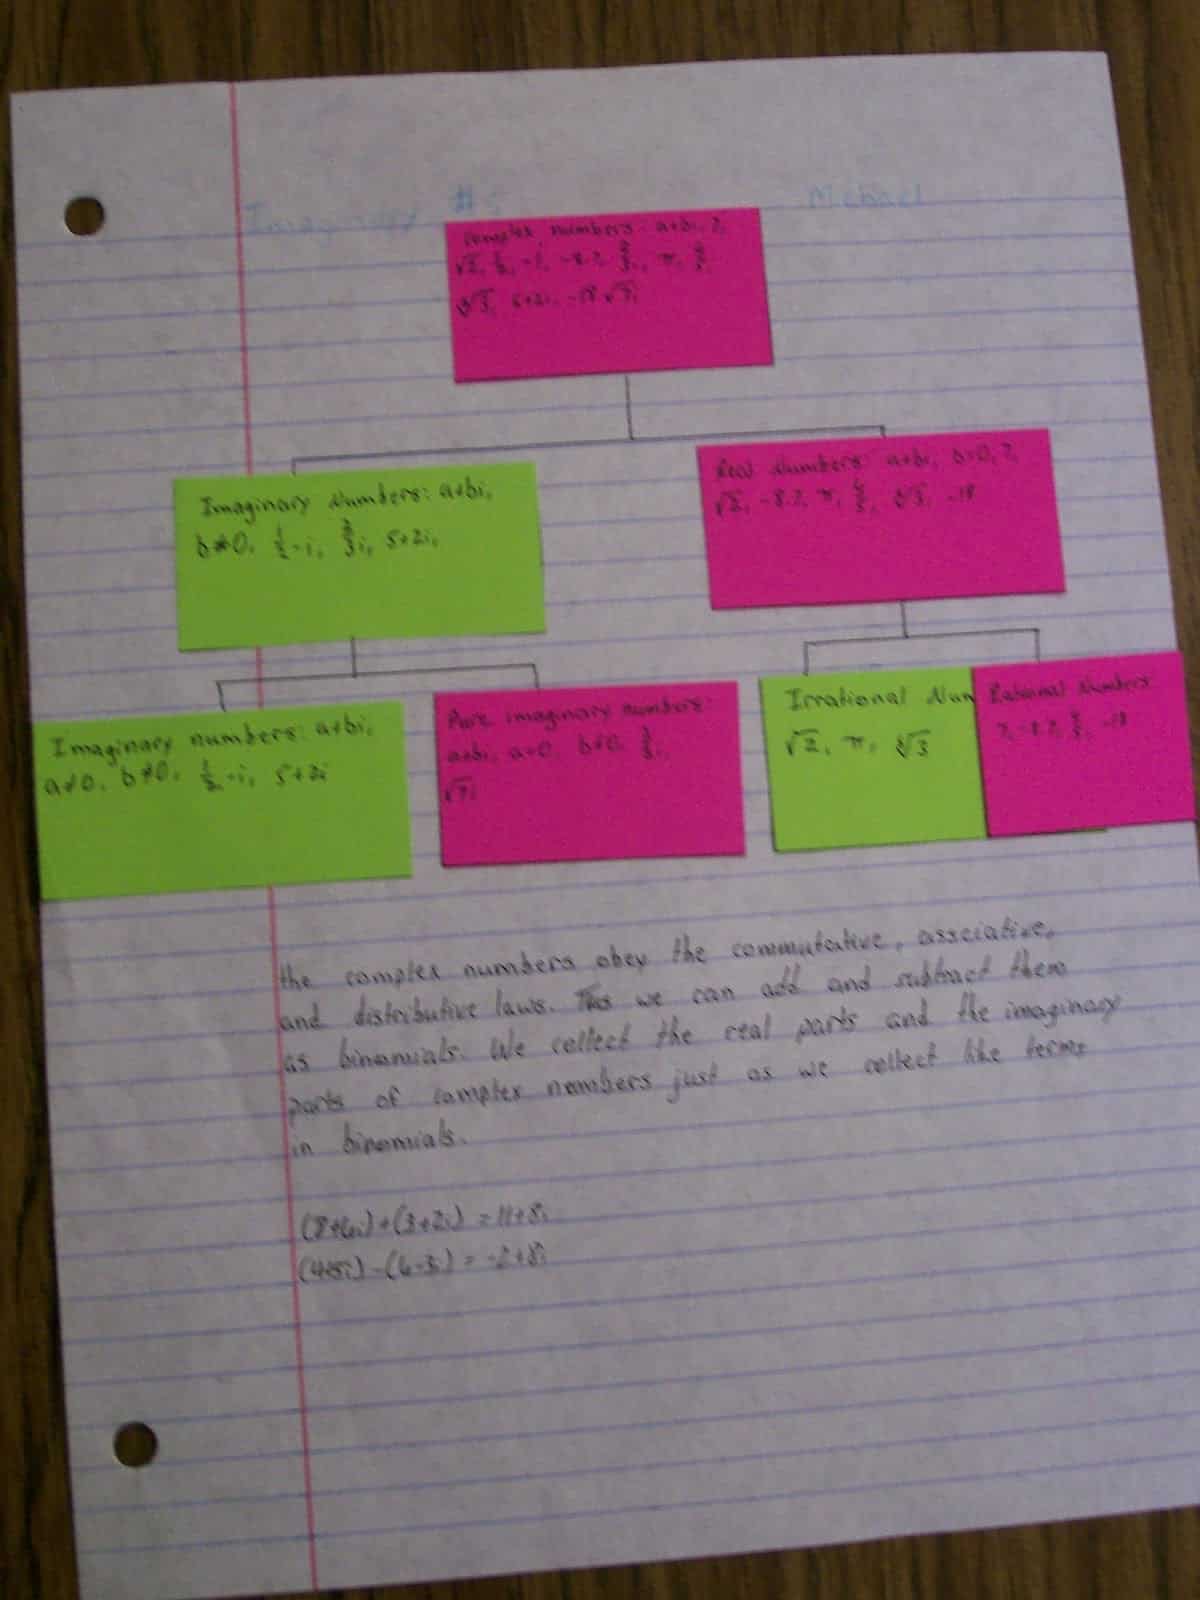 Imaginary #5
Michael
Complex numbers: a+bi, 7,
√2, 1/2, -i, -8.7, 2/3i, π,
∛3, 5+2i, -18 √7i
Imaginary Numbers: a+bi,
b≠0, 1/2-i, 2/3i, 5+2i,
Real Numbers: a+bi, b=0, 7,
√2, -8.7, π, ∛3, -18
Imaginary numbers: a+bi,
a≠0, b≠0, 1/2-i, 5+2i
Pure imaginary numbers:
a+bi, a=0, b≠0, 2/3i,
√7i
Irrational Num
√2, π, ∛3
Rational Numbers:
7, -8.7, -18
the complex numbers obey the commutative, assciative,
and distributive laws. Thus we can add and subtract them
as binomials. We collect the real parts and the imaginary
parts of complex numbers just as we collect like terms
in binomials.
(8+6i)+(3+2i) = 11+8i
(4+5i)-(6-3i) = -2+8i